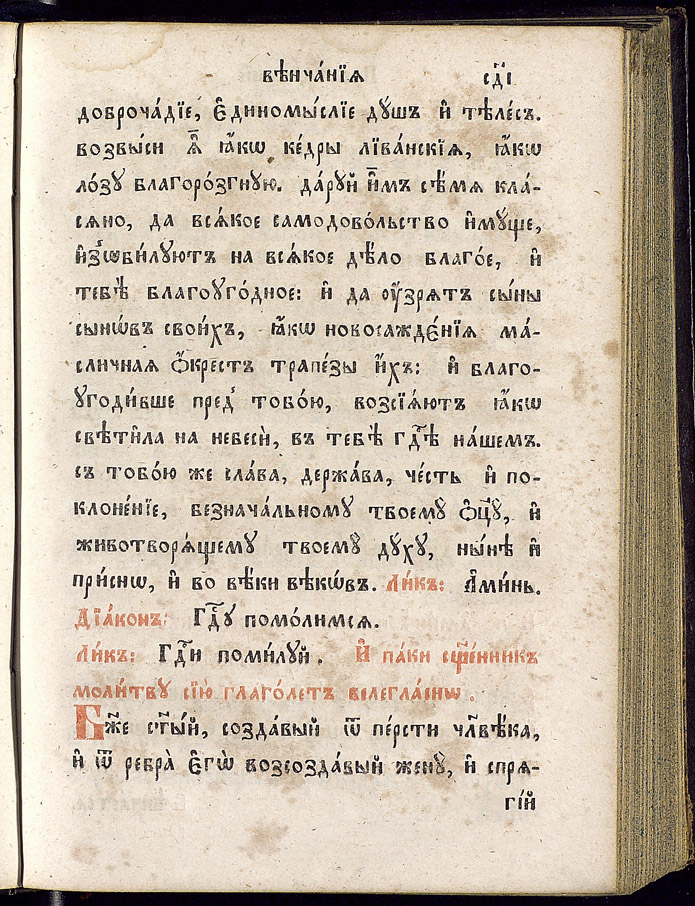 вѣнча́нїѧ сд҃і
доброча́дїе, є҆диномы́слїе дꙋ́шъ и҆ тѣле́съ.
возвы́си ѧ҆̀ ꙗ҆́кѡ ке́дры лїва́нскїѧ, ꙗ҆́кѡ
ло́зꙋ благоро́згнꙋю. да́рꙋй и҆̀мъ сѣ́мѧ кла́-
сѧно, да всѧ́кое самодово́льство и҆мꙋ́ще,
и҆зѡби́лꙋютъ на всѧ́кое дѣ́ло благо́е, и҆
тебѣ̀ благоꙋго́дное: и҆ да ᲂу҆́зрѧтъ сы́ны
сынѡ́въ свои́хъ, ꙗ҆́кѡ новосажде́нїѧ ма́-
сличнаѧ ѻ҆́крестъ трапе́зы и҆́хъ: и҆ благо-
ꙋгоди́вше пред̾ тобо́ю, возсїѧ́ютъ ꙗ҆́кѡ
свѣти́ла на небесѝ, въ тебѣ̀ гдⷭ҇ѣ на́шемъ.
съ тобо́ю же сла́ва, держа́ва, че́сть и҆ по-
клоне́нїе, безнача́льномꙋ твоемꙋ̀ ѻ҆ц҃ꙋ̀, и҆
животворѧ́щемꙋ твоемꙋ̀ дꙋ́хꙋ, ны́нѣ и҆
при́снѡ, и҆ во вѣ́ки вѣкѡ́въ. Ли́къ: А҆ми́нь.
Дїа́конъ: Гдⷭ҇ꙋ помо́лимсѧ.
Ли́къ: Гдⷭ҇и поми́лꙋй. И҆ па́ки сщ҃е́нникъ
моли́твꙋ сїю̀ глаго́летъ велегла́снѡ.
Бж҃е ст҃ы́й, созда́вый ѿ пе́рсти чл҃вѣ́ка,
и҆ ѿ ребра̀ є҆гѡ̀ возсозда́вый женꙋ̀, и҆ спрѧ-
гі́й